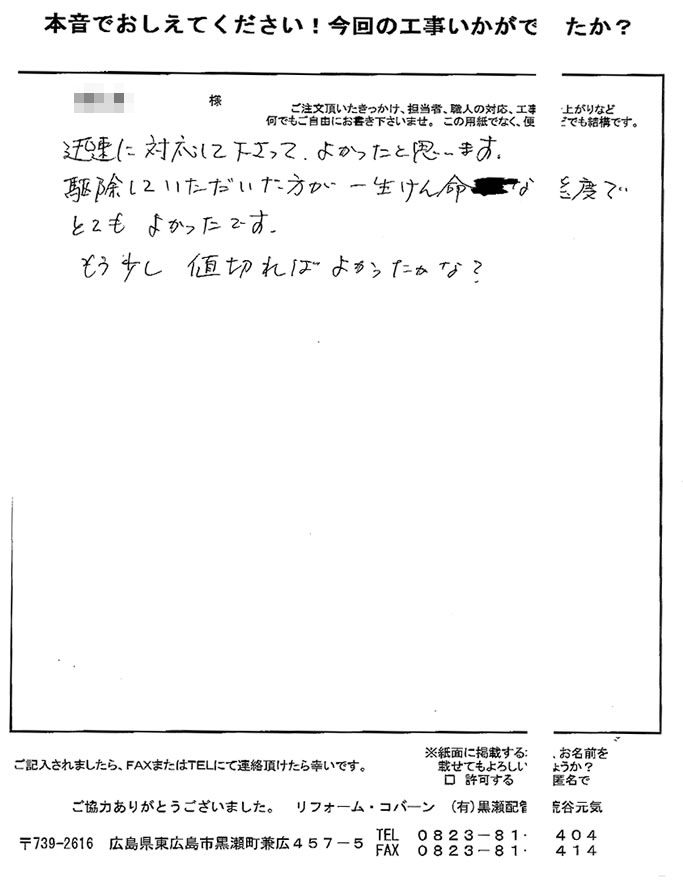 本音でおしえてください！今回の工事いかがで たか？
様
ご注文頂いたきっかけ、担当者、職人の対応、工事 上がりなど
何でもご自由にお書き下さいませ。 この用紙でなく、便 どでも結構です。
迅速に対応して下さって、よかったと思います。
駆除していただいた方が 一生けん命 な 度で
とても よかったです。
もう少し 値切れば よかったかな？
※紙面に掲載する お名前を
ご記入されましたら、FAXまたはTELにて連絡頂けたら幸いです。 載せてもよろしい ょうか？
□ 許可する 匿名で
ご協力ありがとうございました。 リフォーム・コバーン （有）黒瀬配管 荒谷元気
〒739-2616 広島県東広島市黒瀬町兼広４５７－５ TEL ０８２３－８１ ４０４
FAX ０８２３－８１ ４１４